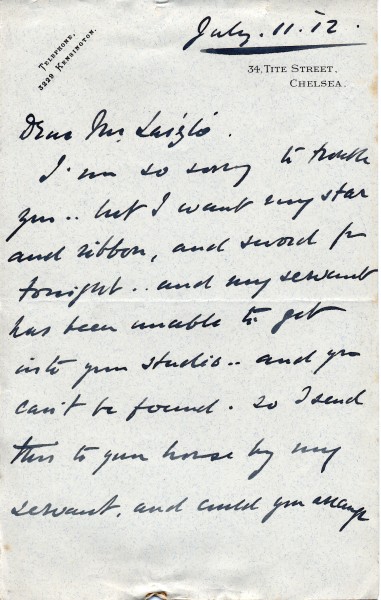 July. 11. 12.
TELEPHONE,
3229 KENSINGTON.
34, TITE STREET,
CHELSEA.
Dear Mr. László.
I'm so sorry to trouble
you .. but I want my star
and ribbon, and sword for
tonight .. and my servant
has been unable to get
into your studio .. and you
can't be found. so I send
this to your house by my
servant, and could you arrange